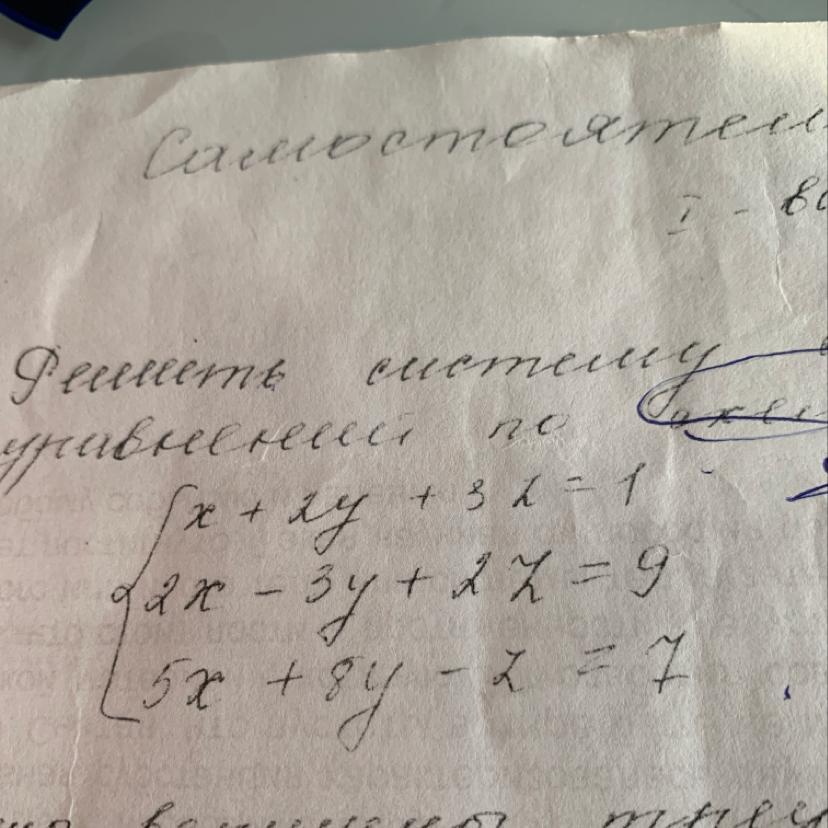 Самостоятел
I - ва
Решить систему
уравнений по
x + 2y + 3z = 1
2x - 3y + 2z = 9
5x + 8y - z = 7